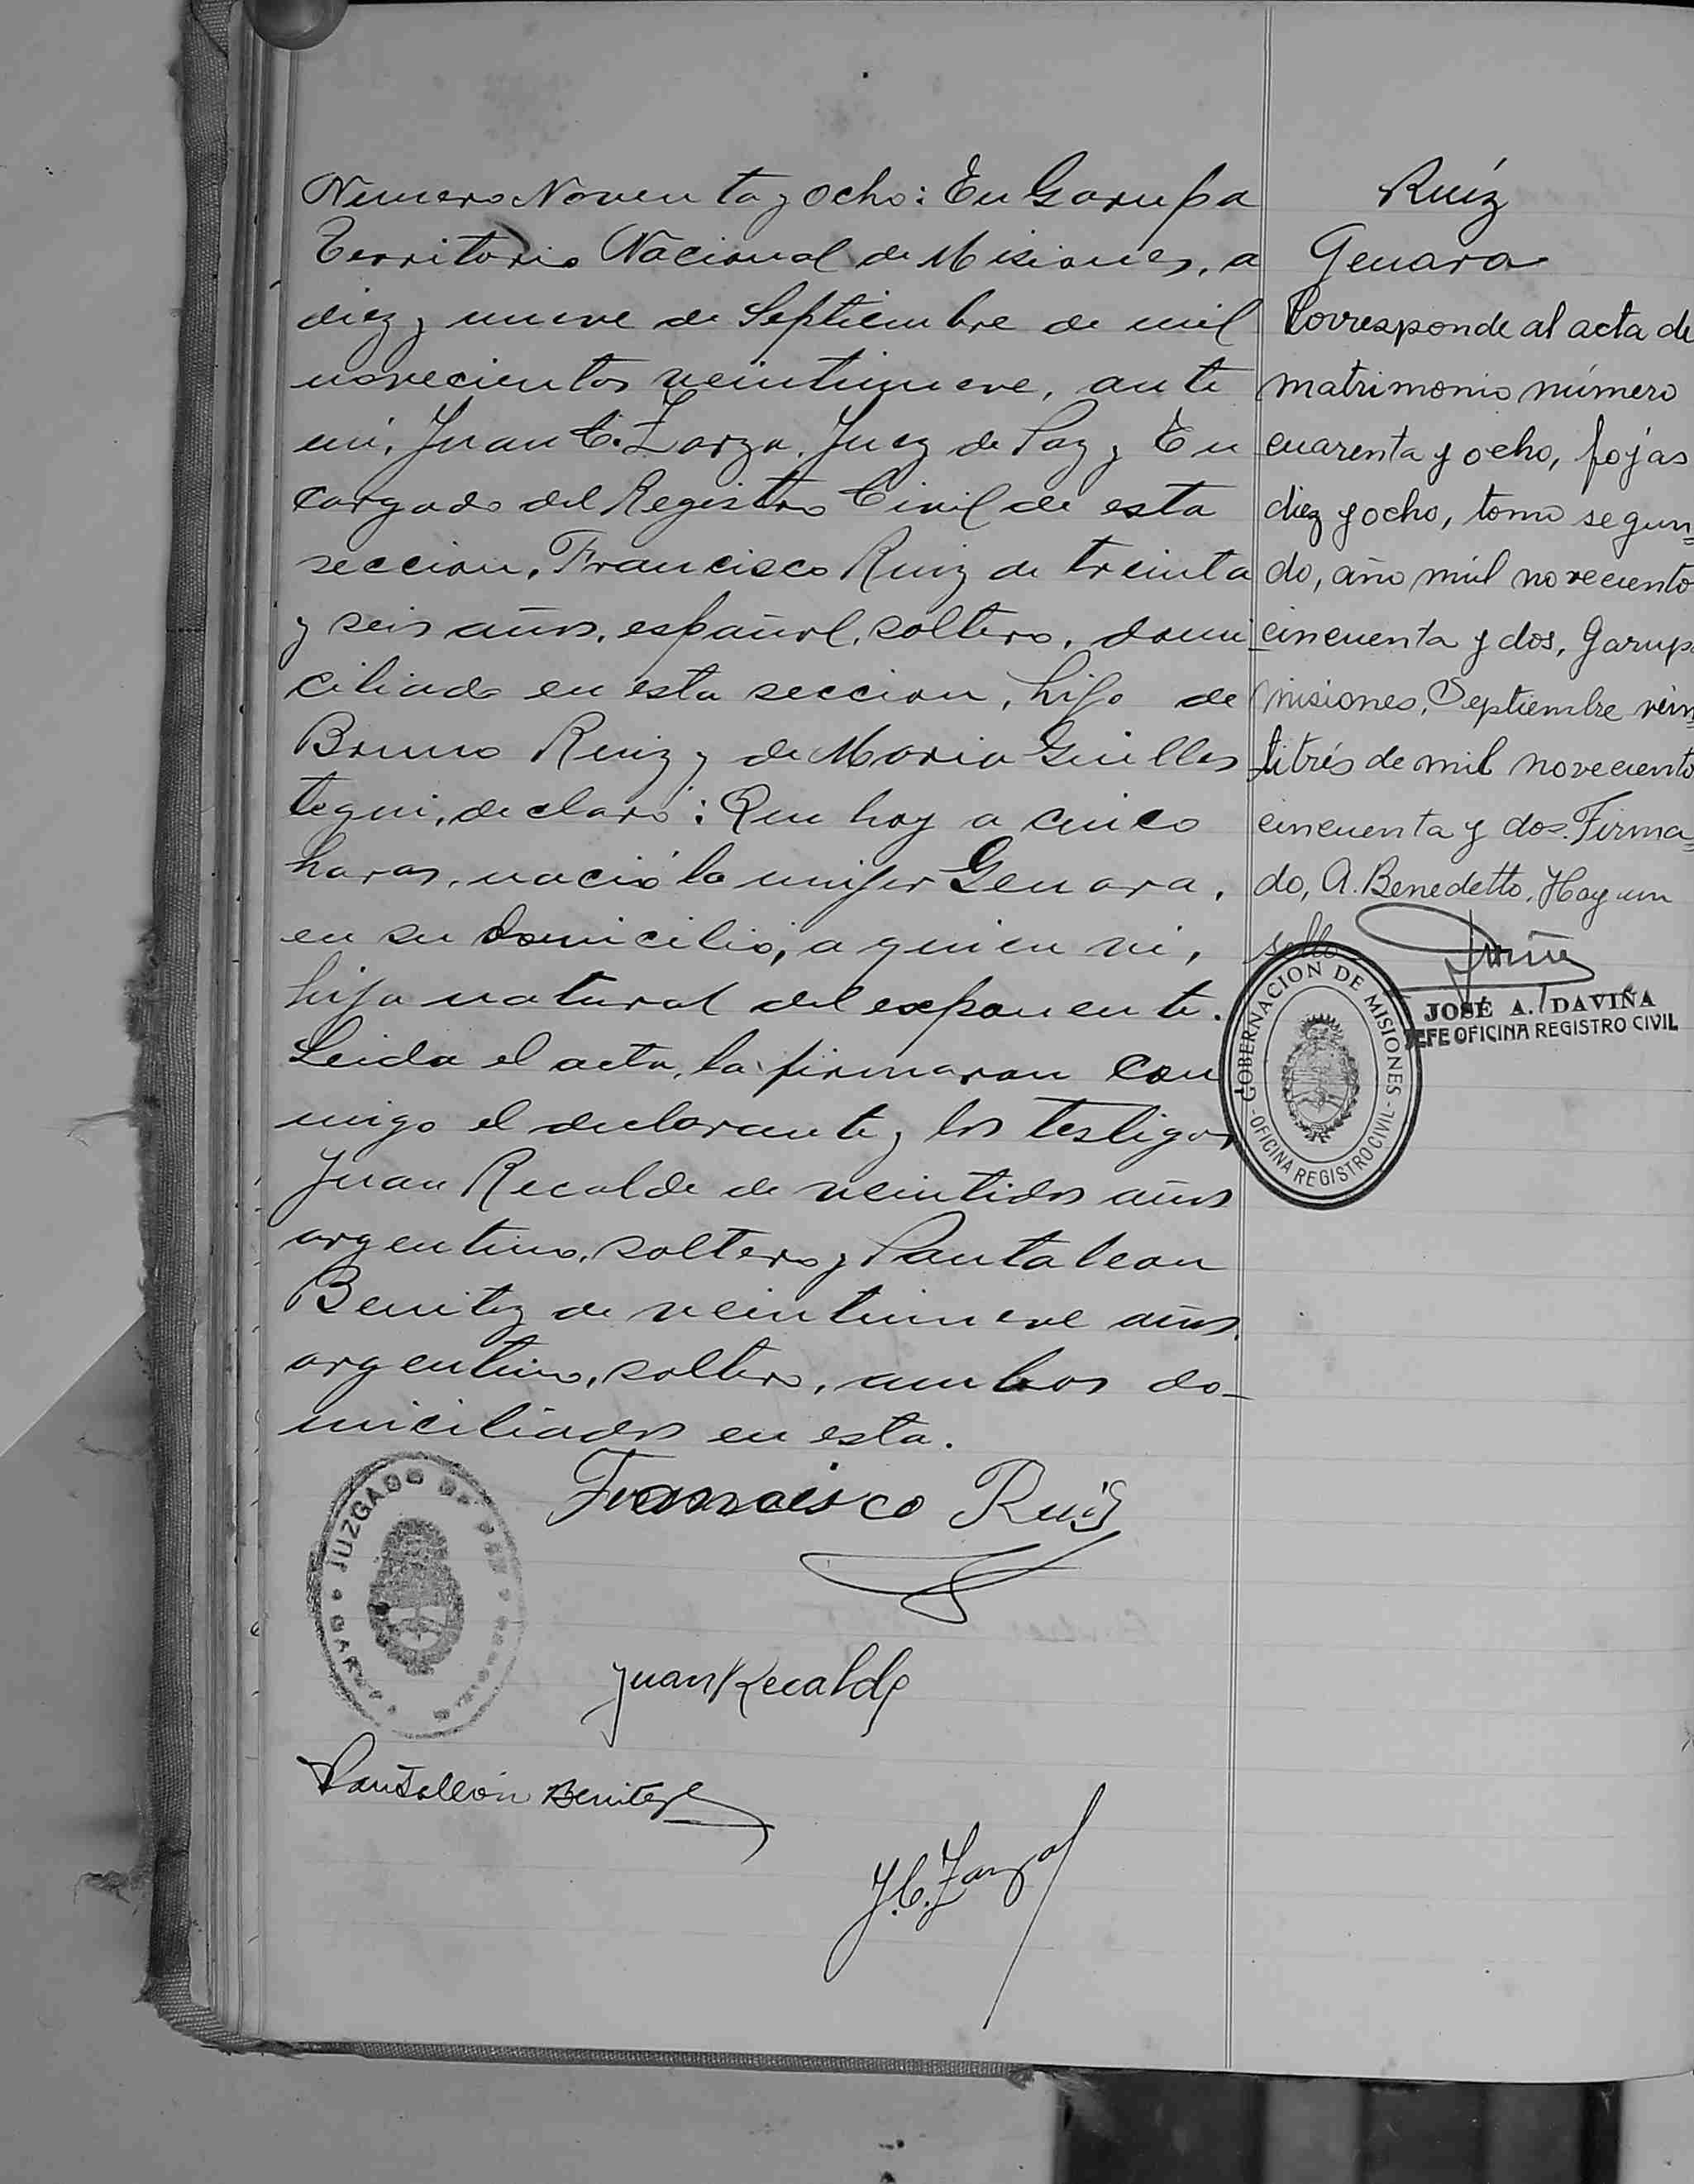 Numero Noventa y ocho: En Garupa
Territorio Nacional de Misiones, a
diez y nueve de Septiembre de mil
novecientos veintinueve, ante
mi, Juan C. Zarza, Juez de Paz y En
cargado del Registro Civil de esta
seccion, Francisco Ruiz de treinta
y seis años, español, soltero, domi
ciliado en esta seccion, hijo de
Bruno Ruiz y de Maria Guilles
tegui, declaró: Que hoy a cinco
horas, nació la mujer Genara,
en su domicilio, a quien vi,
hija natural del exponente.
Leida el acta, la firmaron con
migo el declarante y los testigos
Juan Recalde de veintidos años
argentino, soltero y Pantaleon
Benitez de veintinueve años
argentino, soltero, ambos do-
miciliados en esta.
Francisco Ruiz
JUZGADO DE PAZ
Juan Recalde
Pantalleón Benitez
J.C. Zarza
Ruíz
Genara
Corresponde al acta de
matrimonio número
cuarenta y ocho, fojas
diez y ocho, tomo segun=
do, año mil noveciento
cincuenta y dos, Garup
misiones, Septiembre vein=
titrés de mil noveciento
cincuenta y dos. Firma=
do, A. Benedetto, Hay un
sello
JOSÉ A. DAVIÑA
JEFE OFICINA REGISTRO CIVIL
GOBERNACION DE MISIONES
- OFICINA REGISTRO CIVIL -